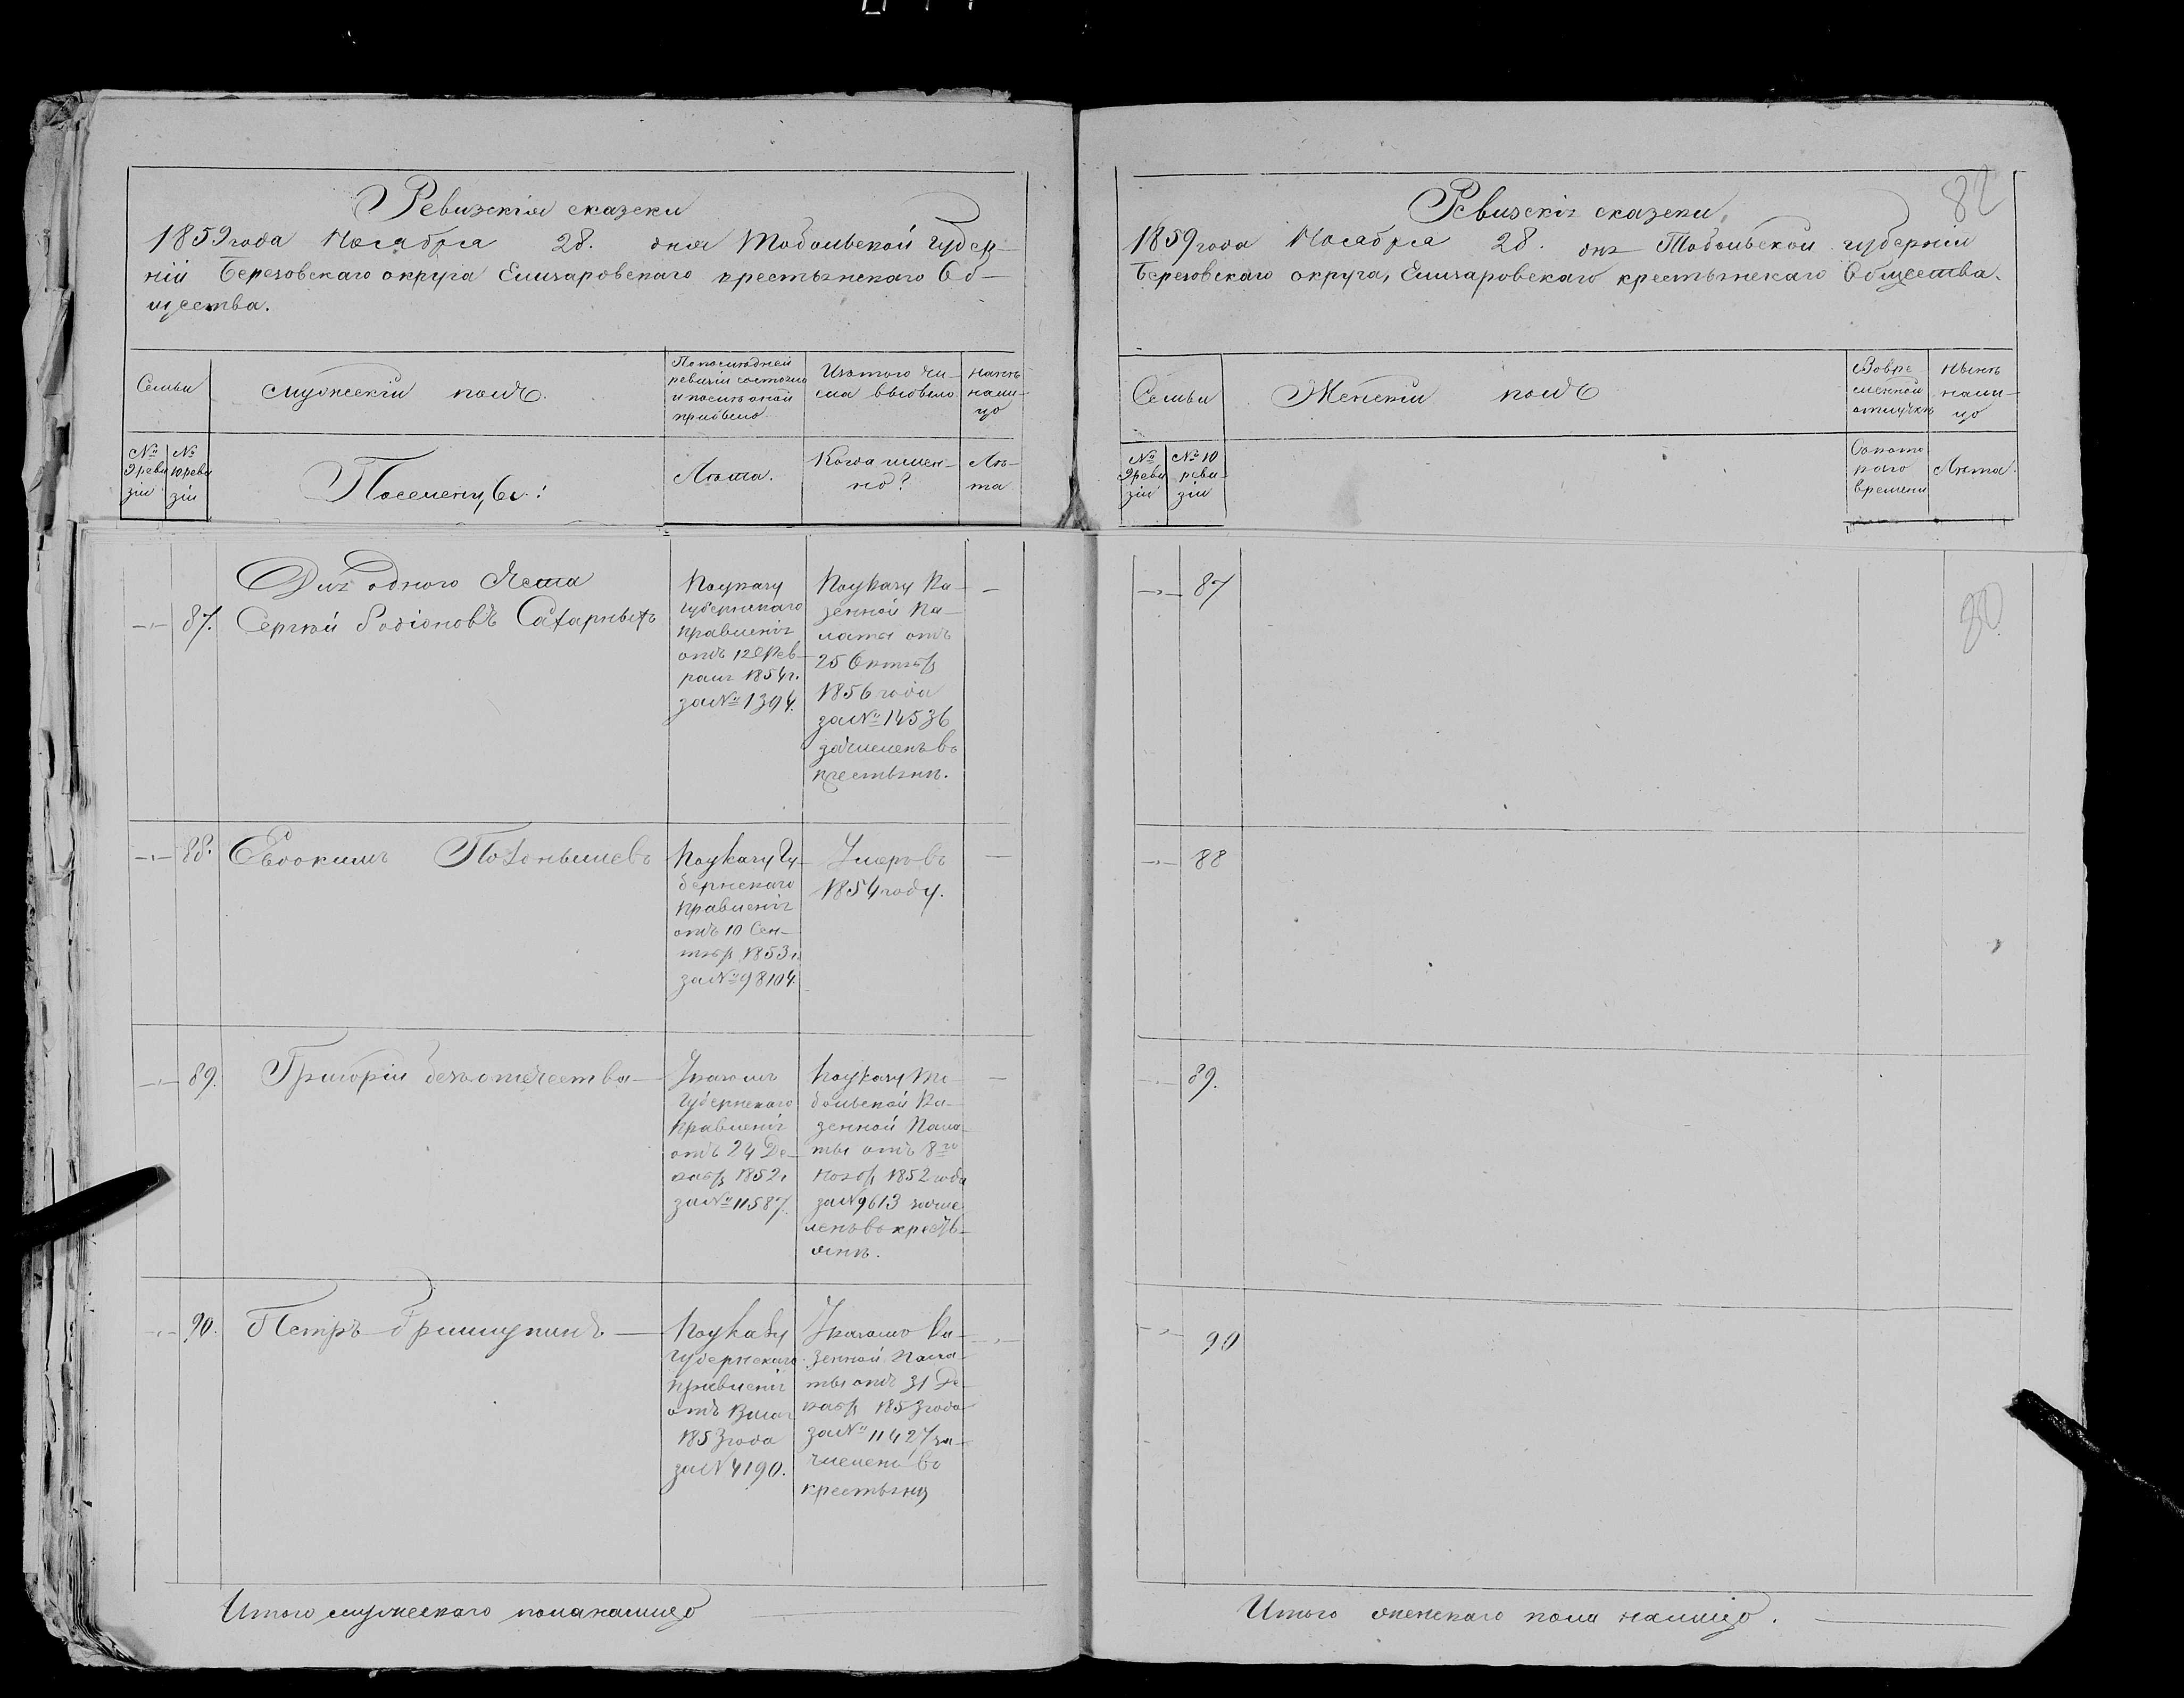 Ревизскія сказки
1859 года Ноября 28. дня Тобольской губер-
ніи Березовскаго округа Елизаровскаго крестьянскаго Об-
щества.
Семьи
Мужескій полъ.
По последней
ревизіи состояло
и после оной
прибыло
Изъ того чи-
сла выбыло
Ныне
нали-
цо
№ 9 реви
зіи
№ 10 реви
зіи
Поселенцы:
Лѣта.
Когда имен-
но?
Лѣ-
та
87.
Сергѣй Родіоновъ Сахарныхъ
По указу
губернскаго
правленія
отъ 12 Фев-
раля 1854 г.
за № 1394.
По указу Ка-
зенной Па-
латы отъ
25 Октяб
1856 года
за № 14536
зачисленъ въ
крестьяне.
88.
Евдокимъ
По указу Гу-
бернскаго
правленія
отъ 10 Сен-
тяб 1853 г
за № 98104.
Умеръ въ
1854 году.
89.
Григорій безъ отечества
Указомъ
Губернскаго
правленія
отъ 24 Де-
кабр 1852 г
за № 11587.
По указу То-
больской Ка-
зенной Пала-
ты отъ 8го
Нояб 1852 года
за № 9613 зачис
ленъ въ кресть-
яне.
90.
Петръ
По указу
Губернскаго
правленія
отъ
1853 года
за № 4190.
Указомъ Ка-
зенной Пала-
ты отъ 31 Де-
кабр 1853 года
за № 11427 за-
численъ въ
крестьяне
Итого мужескаго пола налицо
Ревизскія сказки,
1859 года Ноября 28. дня Тобольской губерніи
Березовскаго округа, Елизаровскаго крестьянскаго Общества.
82
Семьи
Женскій полъ
Во вре
менной
отлучке
Ныне
нали-
цо
№ 9 реви
зіи
№ 10
реви-
зіи
Съ кото
раго
времени
Лѣта.
87
80
88
89.
90
Итого женскаго пола налицо.